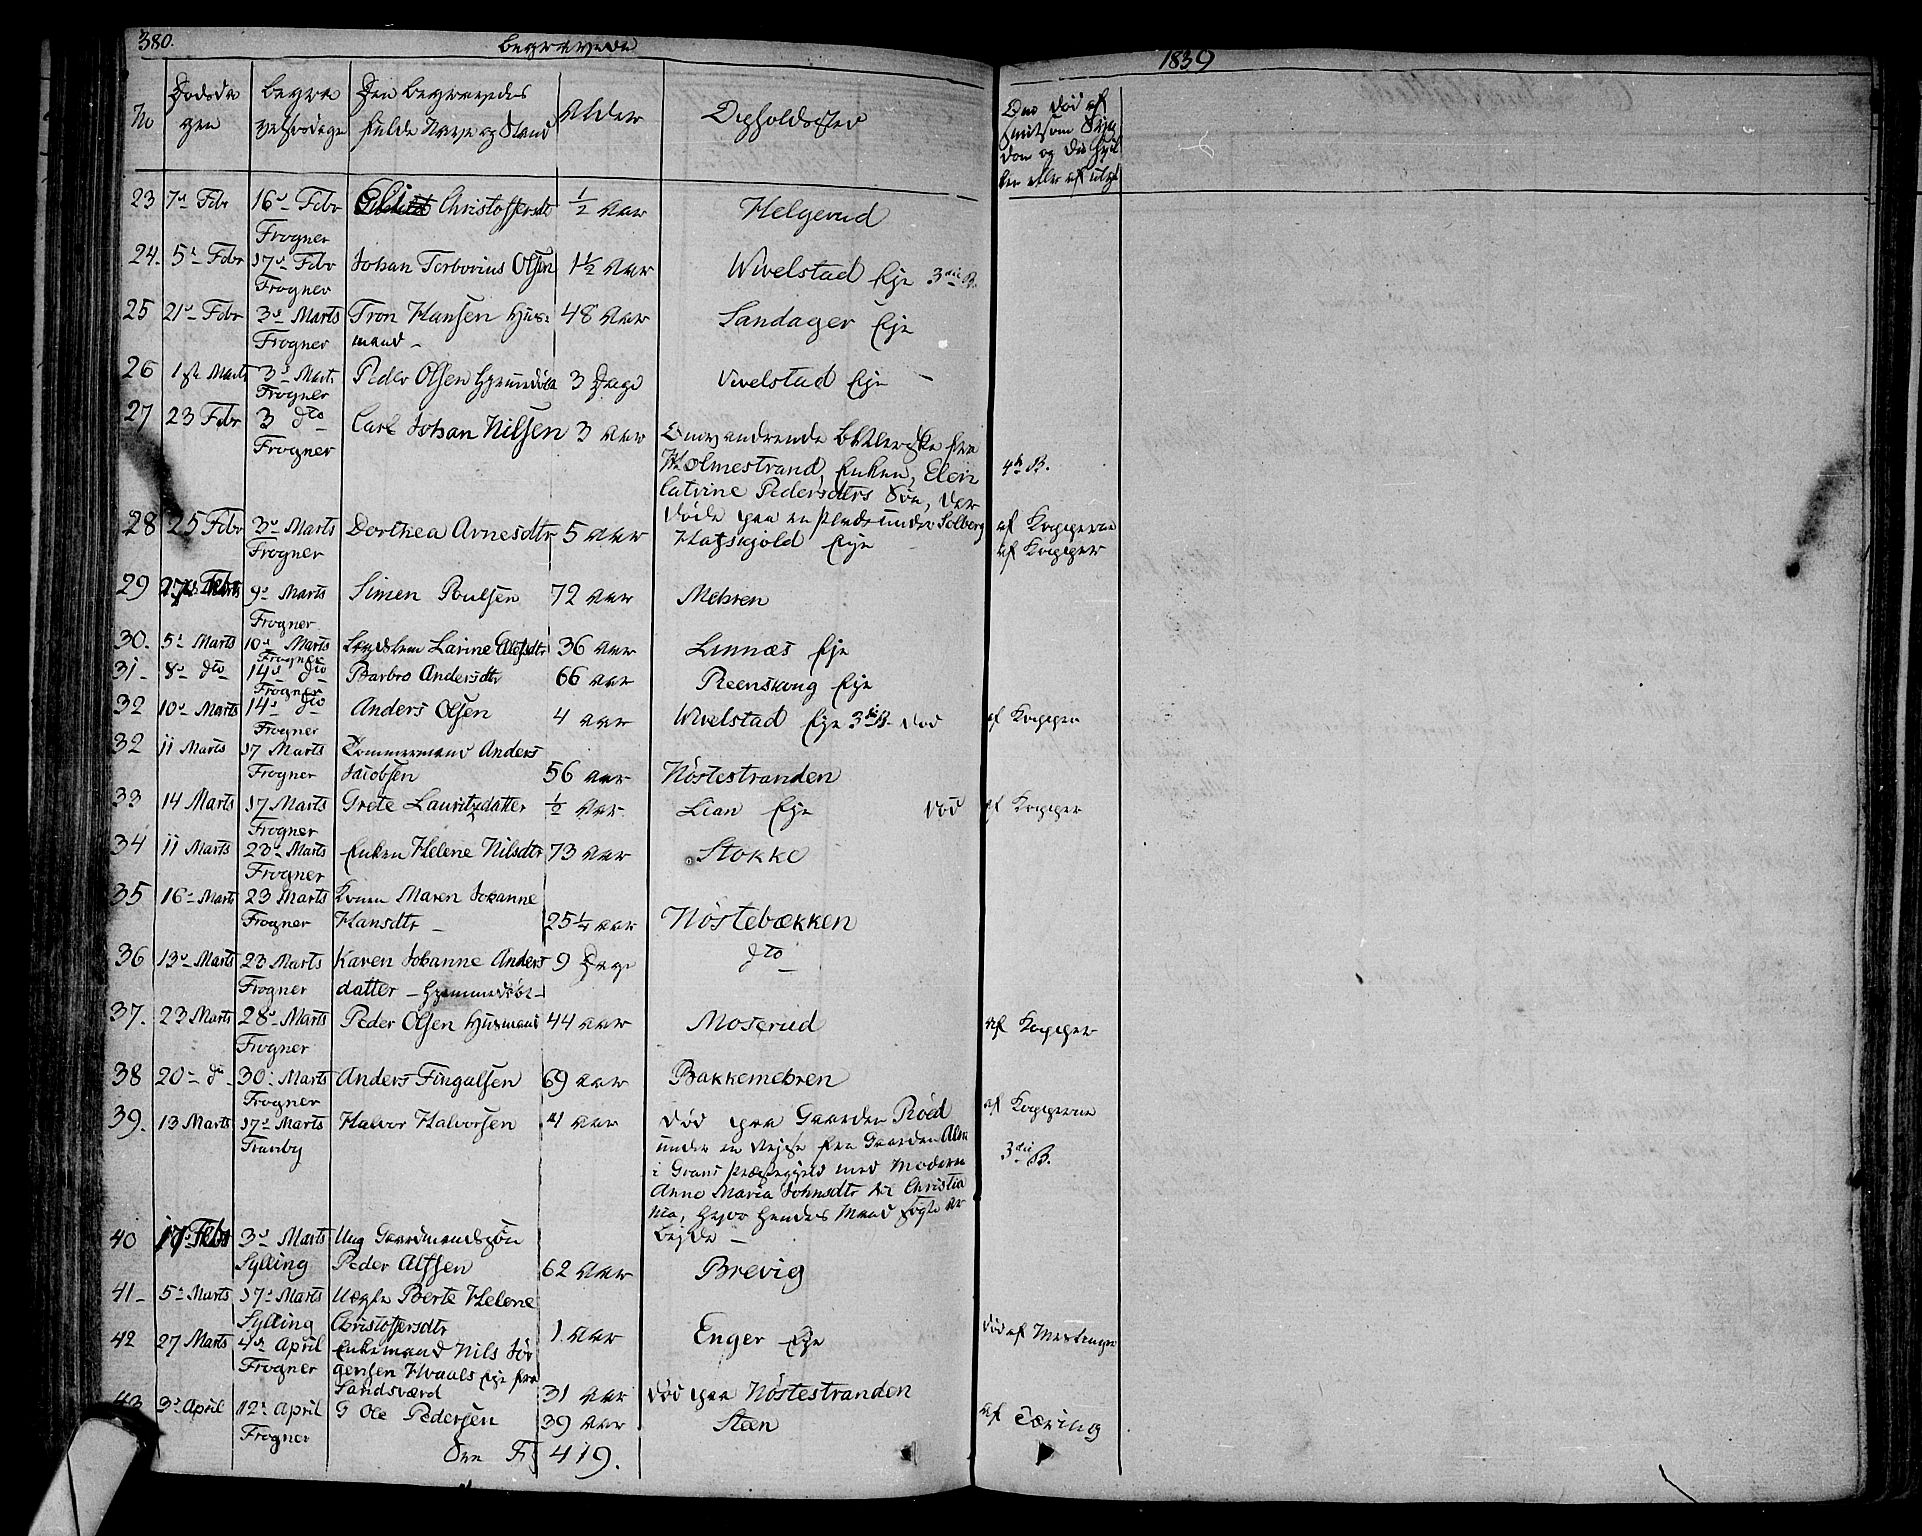 380. Begravede 1839
No Dødsda Begra Den Begravedes Alder Opholdssted Om død af
gen velsesdagen fulde Navn og Stand smitsom Syg
dom og
23 7de Febr 16de Febr Christoffersdtr ½ Aar Helgerud
Frogner
24. 5te Febr 17de Febr Johan Torbovius Olsen 1½ Aar Wivelstad Eje 3die B.
Frogner
25 21de Febr 3de Marts Tron Hansen Huus- 48 Aar Sandager Eje
Frogner mand -
26 1ste Marts 3de Marts Peder Olsen Hjemmedøbt 3 Dage Vivelstad Eje -
Frogner
27 23 Febr 3 dto Carl Johan Nilsen 3 Aar Omvandrende Betlerske fra
Frogner Holmestrand, Enken, Elen 4de B.
Catrine Pedersdtrs Søn, der
døde paa en Plads under Solberg af Kopperne
28 25 Febr 3de Marts Dorthea Arnesdtr 5 Aar Hatskjold Eje af Kopper
Frogner
29 Febr 9de Marts Simen Poulsen 72 Aar Mehren
Frogner
30. 5te Marts 10de Marts Lægdslem Larine 36 Aar Linnæs Eje
Frogner
31- 8de dto 14de dto Barbro Andersdtr 66 Aar Reenskoug Eje
Frogner
32 10de Marts 14de dto Anders Olsen 4 Aar Wivelstad Eje 3die B. død af Kopper
Frogner
32 11 Marts 17 Marts Tømmermand Anders
Frogner Jacobsen 56 Aar Nöstestranden
33 14 Marts 17 Marts Grete Lauritzdatter ½ Aar Lian Eje død af Kopper
Frogner
34 11 Marts 23 Marts Enken Helene Nilsdtr 73 Aar Stokke
Frogner
35 16de Marts 23 Marts Konen Maren Johanne
Frogner Hansdtr - 25¼ Aar Nöstebækken
36 13de Marts 23 Marts Karen Johanne Anders 9 Dage dto
Frogner datter - Hjemmedöbt -
37. 23 Marts 28de Marts Peder Olsen Huusmand 44 Aar Moserud af Kopper
Frogner
38 20de do 30 Marts Anders Fingalsen 69 Aar Bakkemehren
Frogner
39. 13 Marts 17de Marts Halvor Halvorsen 4 Aar død paa Gaarden Röed af Kopperne
Tranby under en Rejse fra Gaarden
i Grans Præstegjeld med Moderen 3die B.
Anne Maria Johnsdtr til Christia
nia, hvor hendes Mand søgte Ar
bejde -
40 Febr 3de Marts Ung Gaardmandssøn
Sylling Peder Alfsen 62 Aar Brevig
41- 5te Marts 17de Marts Uægte Berte Helene
Sylling Christoffersdtr 1 Aar Enger Eje død af
42 27 Marts 4de April Enkemand Nils Jör
Frogner gensen Hvaals Eje fra
Sandsværd 31 Aar død paa Nöstestranden
43 3de April 12te April G Ole Pedersen 39 Aar Steen af Tæring
Frogner
419.